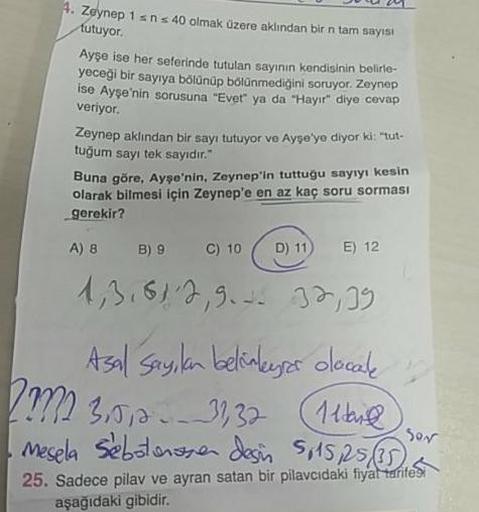 4. Zeynep 1 ≤ n ≤ 40 olmak üzere aklından bir n tam sayısı
tutuyor.
Ayşe ise her seferinde tutulan sayının kendisinin belirle-
yeceği bir sayıya bölünüp bölünmediğini soruyor. Zeynep
ise Ayşe'nin sorusuna "Evet" ya da "Hayır" diye cevap
veriyor.
Zeynep aklından bir sayı tutuyor ve Ayşe'ye diyor ki: "tut-
tuğum sayı tek sayıdır."
Buna göre, Ayşe'nin, Zeynep'in tuttuğu sayıyı kesin
olarak bilmesi için Zeynep'e en az kaç soru sorması
gerekir?
A) 8 B) 9 C) 10 D) 11 E) 12
1, 3, 5, 7, 9, ... 37, 39
Asal sayıları belirleyici olacak
???? 3, 5, 7 ... 31, 37 11 tane
Mesela desin 5, 15, 25, 35 sor
25. Sadece pilav ve ayran satan bir pilavcıdaki fiyat tarifesi
aşağıdaki gibidir.